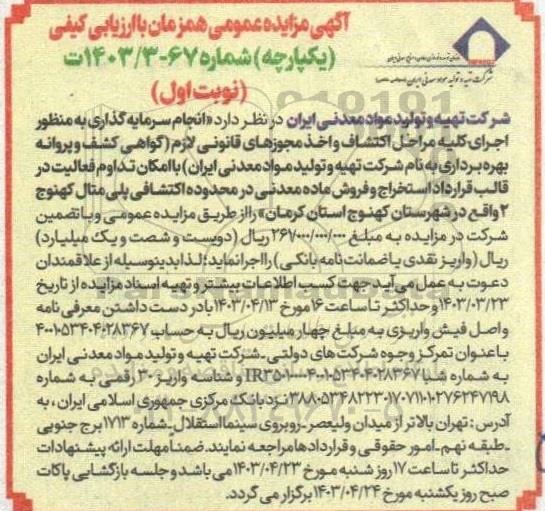 آگهی مزایده عمومی همزمان با ارزیابی کیفی
(یکپارچه) شماره ۶۷-۱۴۰۳/۳ت
(نوبت اول)
شرکت تهیه و تولید مواد معدنی ایران
شرکت تهیه و تولید مواد معدنی ایران در نظر دارد «انجام سرمایه گذاری به منظور
اجرای کلیه مراحل اکتشاف و اخذ مجوزهای قانونی لازم (گواهی کشف و پروانه
بهره برداری به نام شرکت تهیه و تولید مواد معدنی ایران) با امکان تداوم فعالیت در
قالب قرارداد استخراج و فروش ماده معدنی در محدوده اکتشافی پلی متال کهنوج
۲ واقع در شهرستان کهنوج استان کرمان» را از طریق مزایده عمومی و با تضمین
شرکت در مزایده به مبلغ ۲۶۷/۰۰۰/۰۰۰/۰۰۰ ریال (دویست و شصت و یک میلیارد)
ریال (واریز نقدی یا ضمانت نامه بانکی) را اجرا نماید؛ لذا بدینوسیله از علاقمندان
دعوت به عمل می آید جهت کسب اطلاعات بیشتر و تهیه اسناد مزایده از تاریخ
۱۴۰۳/۰۳/۲۳ و حداکثر تا ساعت ۱۶ مورخ ۱۴۰۳/۰۴/۱۳ با در دست داشتن معرفی نامه
و اصل فیش واریزی به مبلغ چهار میلیون ریال به حساب ۴۰۰۱۰۵۳۴۰۴۰۲۸۳۶۷
با عنوان تمرکز وجوه شرکت های دولتی ـ شرکت تهیه و تولید مواد معدنی ایران
به شماره شبا و شناسه واریز ۳۰ رقمی به شماره
نزد بانک مرکزی جمهوری اسلامی ایران، به
آدرس: تهران بالاتر از میدان ولیعصر ـ روبروی سینما استقلال ـ شماره ۱۷۱۳ برج جنوبی
ـ طبقه نهم ـ امور حقوقی و قراردادها مراجعه نمایند. ضمنا مهلت ارائه پیشنهادات
حداکثر تا ساعت ۱۷ روز شنبه مورخ ۱۴۰۳/۰۴/۲۳ می باشد و جلسه بازگشایی پاکات
صبح روز یکشنبه مورخ ۱۴۰۳/۰۴/۲۴ برگزار می گردد.